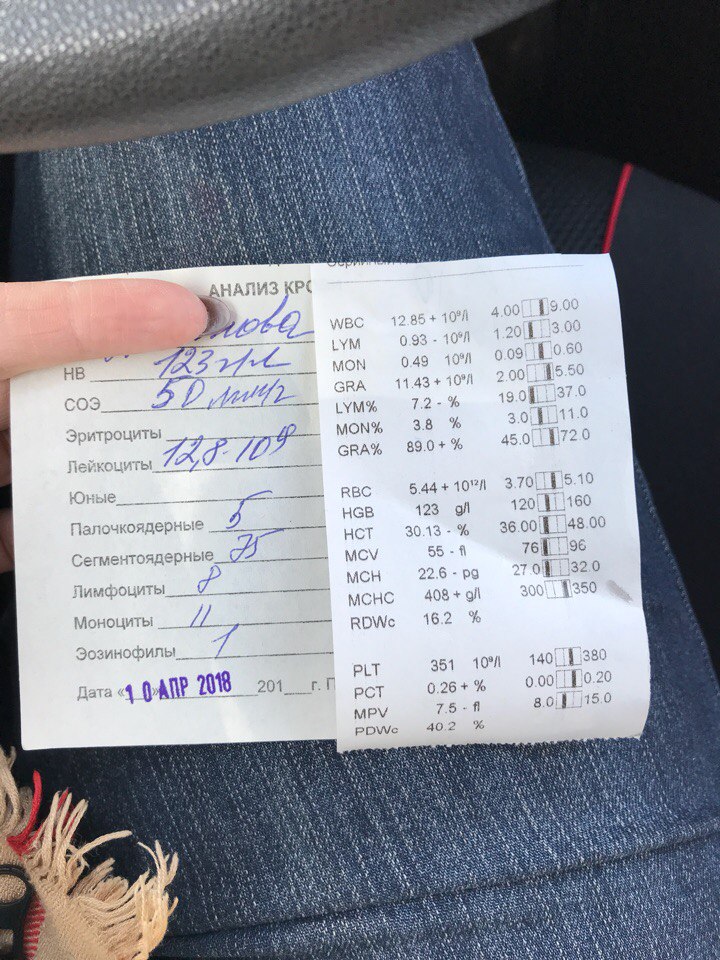 АНАЛИЗ КРО
нова
НВ 123 г/л
СОЭ 50 мм/г
Эритроциты
Лейкоциты 12,8·10⁹
Юные
Палочкоядерные 5
Сегментоядерные 75
Лимфоциты 8
Моноциты 11
Эозинофилы 1
Дата «10 АПР 2018 201 г. П
WBC 12.85 + 10⁹/l 4.00 9.00
LYM 0.93 - 10⁹/l 1.20 3.00
MON 0.49 10⁹/l 0.09 0.60
GRA 11.43 + 10⁹/l 2.00 5.50
LYM% 7.2 - % 19.0 37.0
MON% 3.8 % 3.0 11.0
GRA% 89.0 + % 45.0 72.0
RBC 5.44 + 10¹²/l 3.70 5.10
HGB 123 g/l 120 160
HCT 30.13 - % 36.00 48.00
MCV 55 - fl 76 96
MCH 22.6 - pg 27.0 32.0
MCHC 408 + g/l 300 350
RDWc 16.2 %
PLT 351 10⁹/l 140 380
PCT 0.26 + % 0.00 0.20
MPV 7.5 - fl 8.0 15.0
PDWc 40.2 %